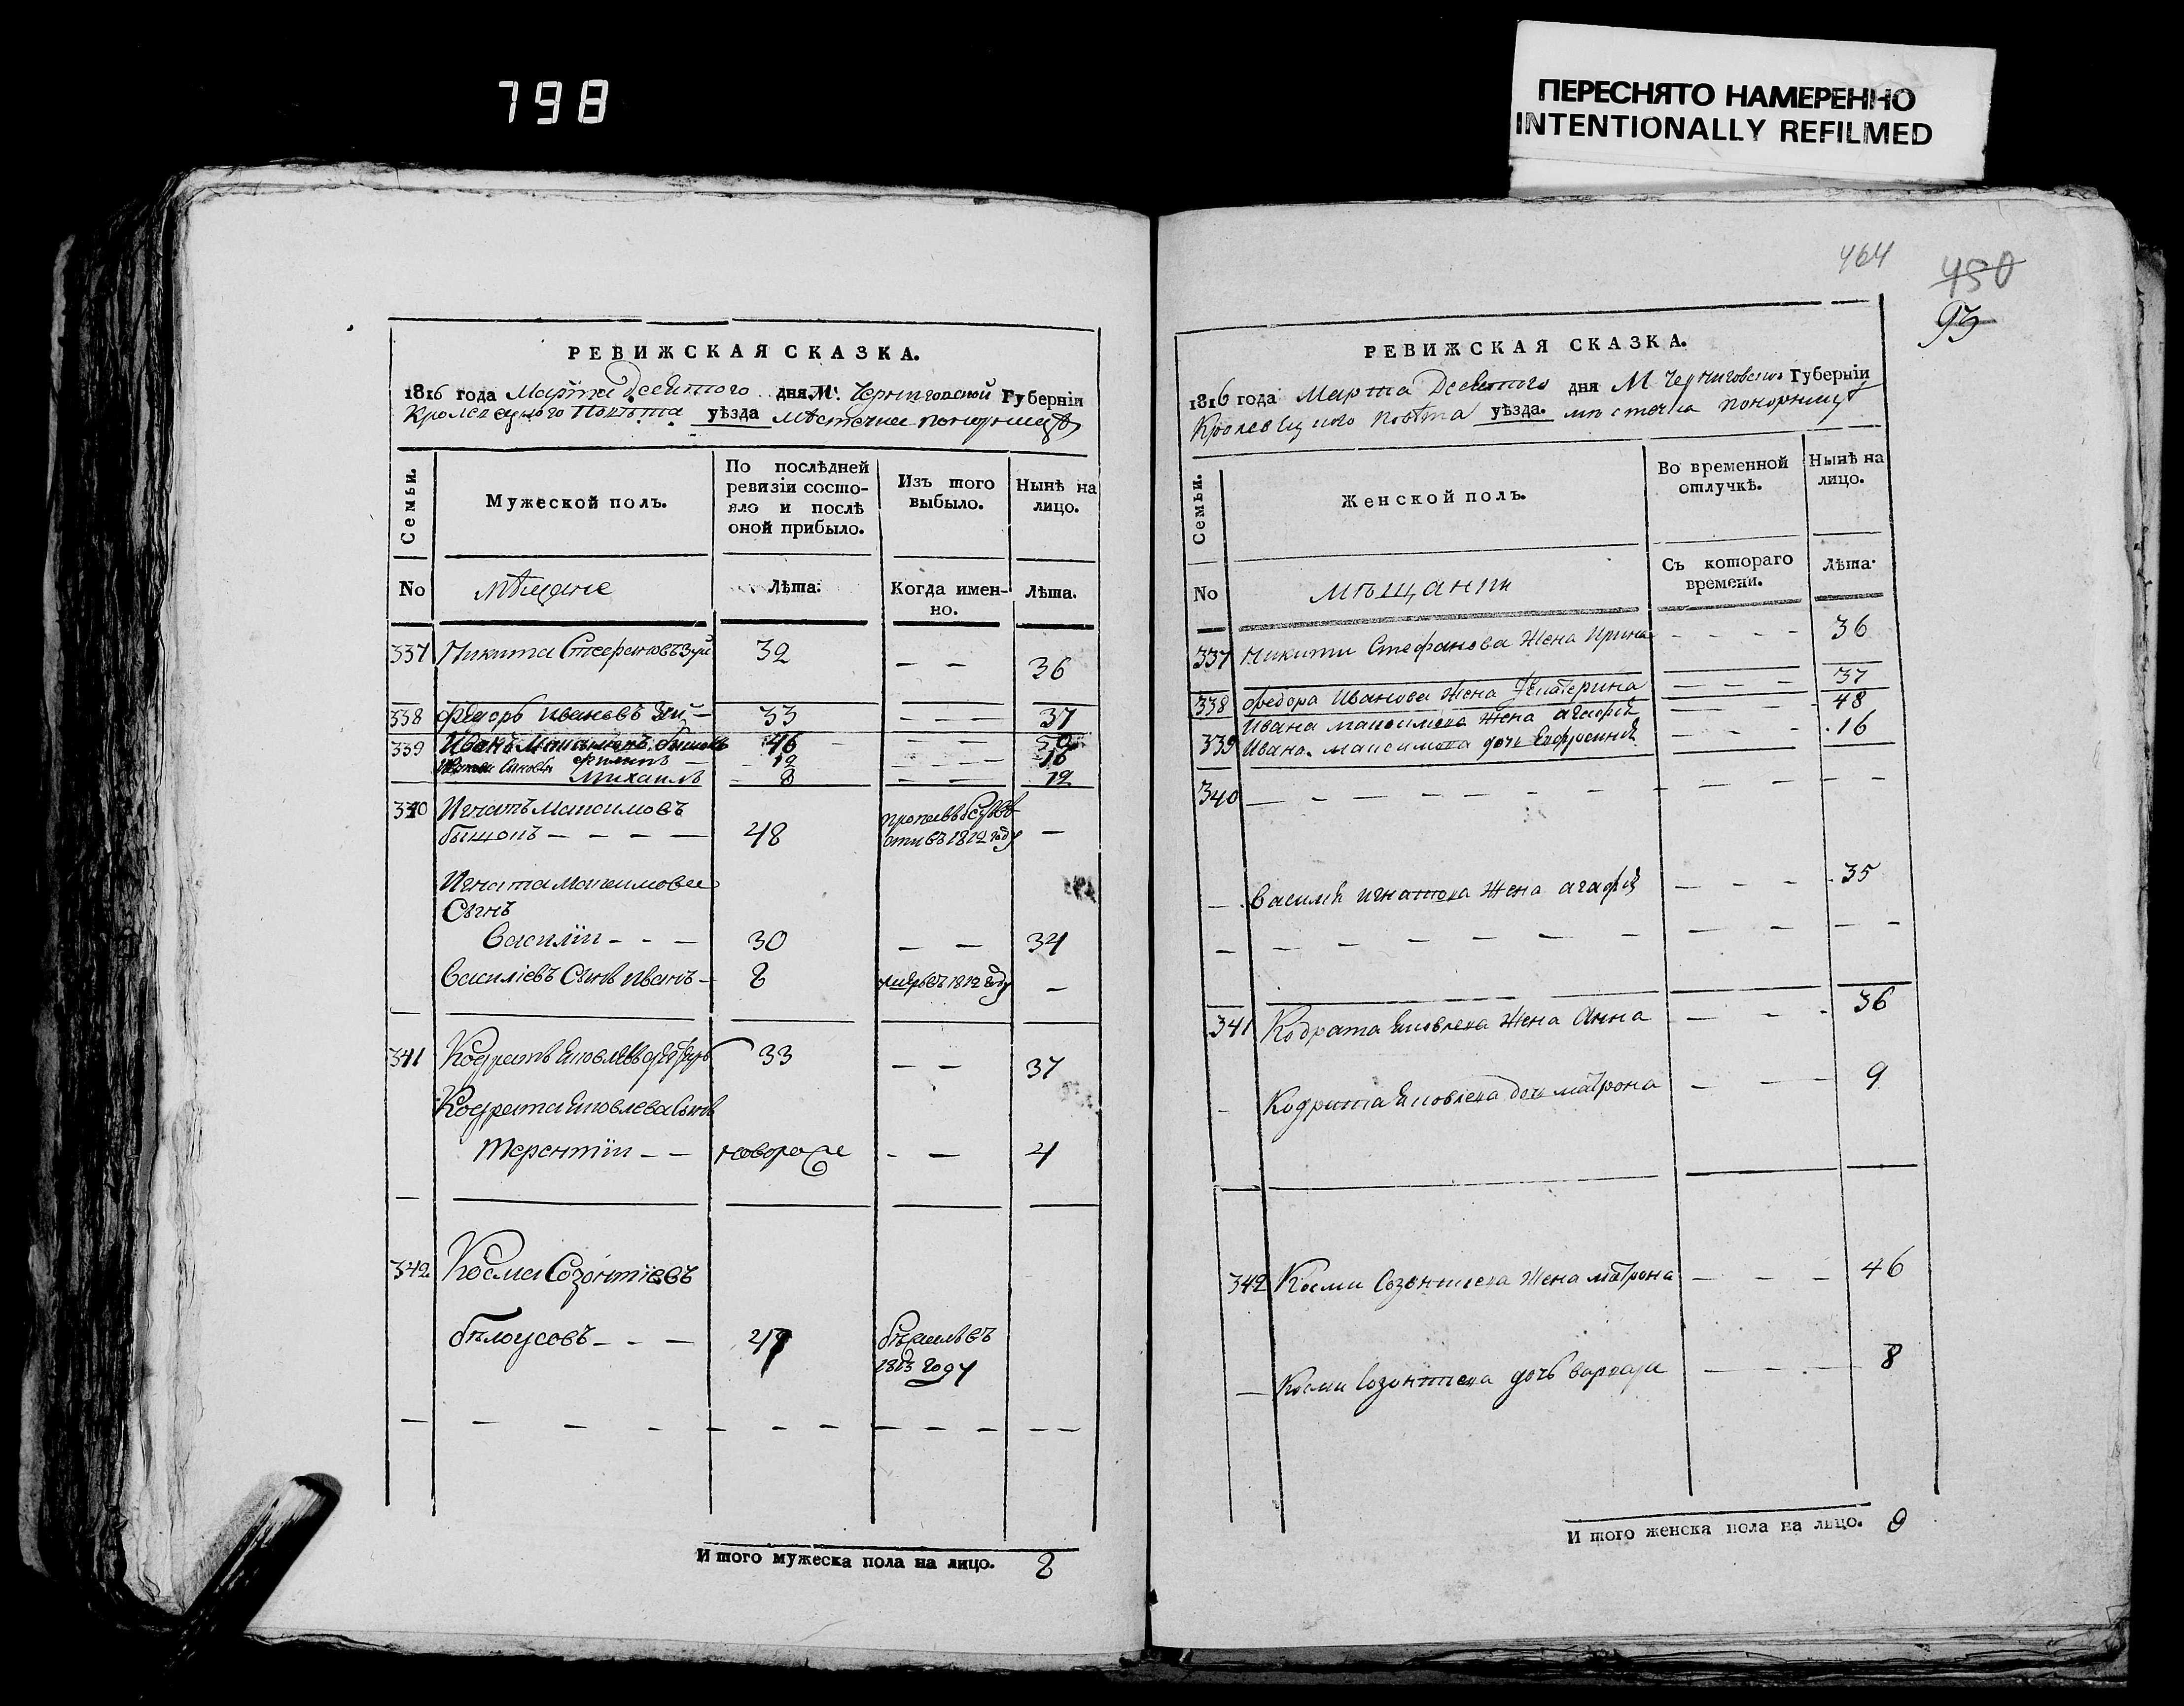 798
ПЕРЕСНЯТО НАМЕРЕННО
INTENTIONALLY REFILMED
РЕВИЖСКАЯ СКАЗКА.
1816 года Марта Десятого дня М. Черниговской Губерніи
Кролевецкого Повѣта уѣзда Мѣстечка Понорницы
Семьи.
Мужеской полъ.
По послѣдней ревизіи состояло и послѣ оной прибыло.
Изъ того выбыло.
Нынѣ на лицо.
No
мѣщане
Лѣта.
Когда именно.
Лѣта.
337 Никита Стефановъ Зуй 32 — — 36
338 Федоръ Ивановъ Зуй — 33 — — — 37
339 Иванъ Максимовъ 46 — — — 50
Сыновья Филипъ — 12 — — — 16
Михаилъ 8 — — — 12
340 Игнатъ Максимовъ
— — — — 48 въ 1812 году —
Игната Максимова
Сынъ
Василій - - — 30 — — 34
Василіевъ Сынъ Иванъ - 8 въ 1812 году —
341 Кодратъ Яковлевъ 33 — — 37
Кодрата Яковлева Сынъ
Терентій — — новорожде - — 4
342 Косма Созонтіевъ
бѣлоусовъ - - — въ
1813 году
И того мужеска пола на лицо. 8
464
450
93
РЕВИЖСКАЯ СКАЗКА.
1816 года Марта Десятого дня М Черниговской Губерніи
Кролевецкого Повѣта уѣзда. мѣстечка понорницы
Семьи.
Женской полъ.
Во временной отлучкѣ.
Нынѣ на лицо.
No
мѣщанки
Съ котораго времени.
Лѣта.
337 Никити Стефанова Жена Ирина - - - - 36
338 Федора Иванова Жена Екатерина — — — 37
Ивана Максимова Жена агафія — — — 48
339 Ивана Максимова дочь Евфросинія — - - - 16
340 — - — — — - - - — — — —
— Василія игнатова Жена агафія — - - 35
341 Кодрата Яковлева Жена Анна — - - 36
- Кодрата Яковлева доч матрона — — — 9
342 Косми Созонтиева Жена матрона — — — 46
— Косми Созонтиева дочь варвара — — — 8
И того женска пола на лицо. 9